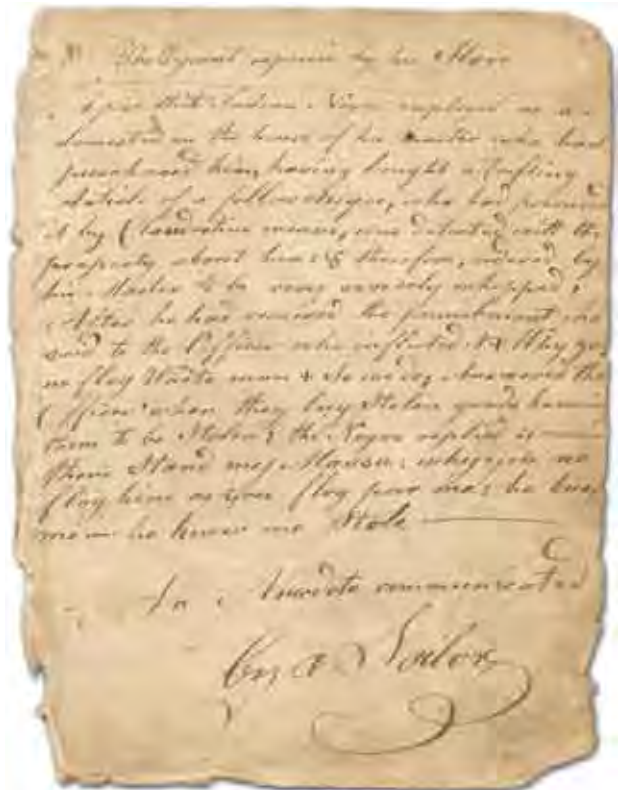 The Tyrant by his Slave
that Indian Negro employed as a
domestic in the house of his master who had
purchased him, having bought a trifling
article of a fellow Negro, who had
it by Clandestine means, was detected with the
property about him & therefore, ordered by
his Master to be very severely whipped;
After he had received the punishment he
said to the Officer who inflicted it Why you
no flog White man & So we do, Answered the
Officer when they buy Stolen goods
them to be Stolen; the Negro replied
there Stand my Massa; why you no
flog him as you flog poor me; he buy
me he knew me Stole
An Anecdote communicated
By a Sailor